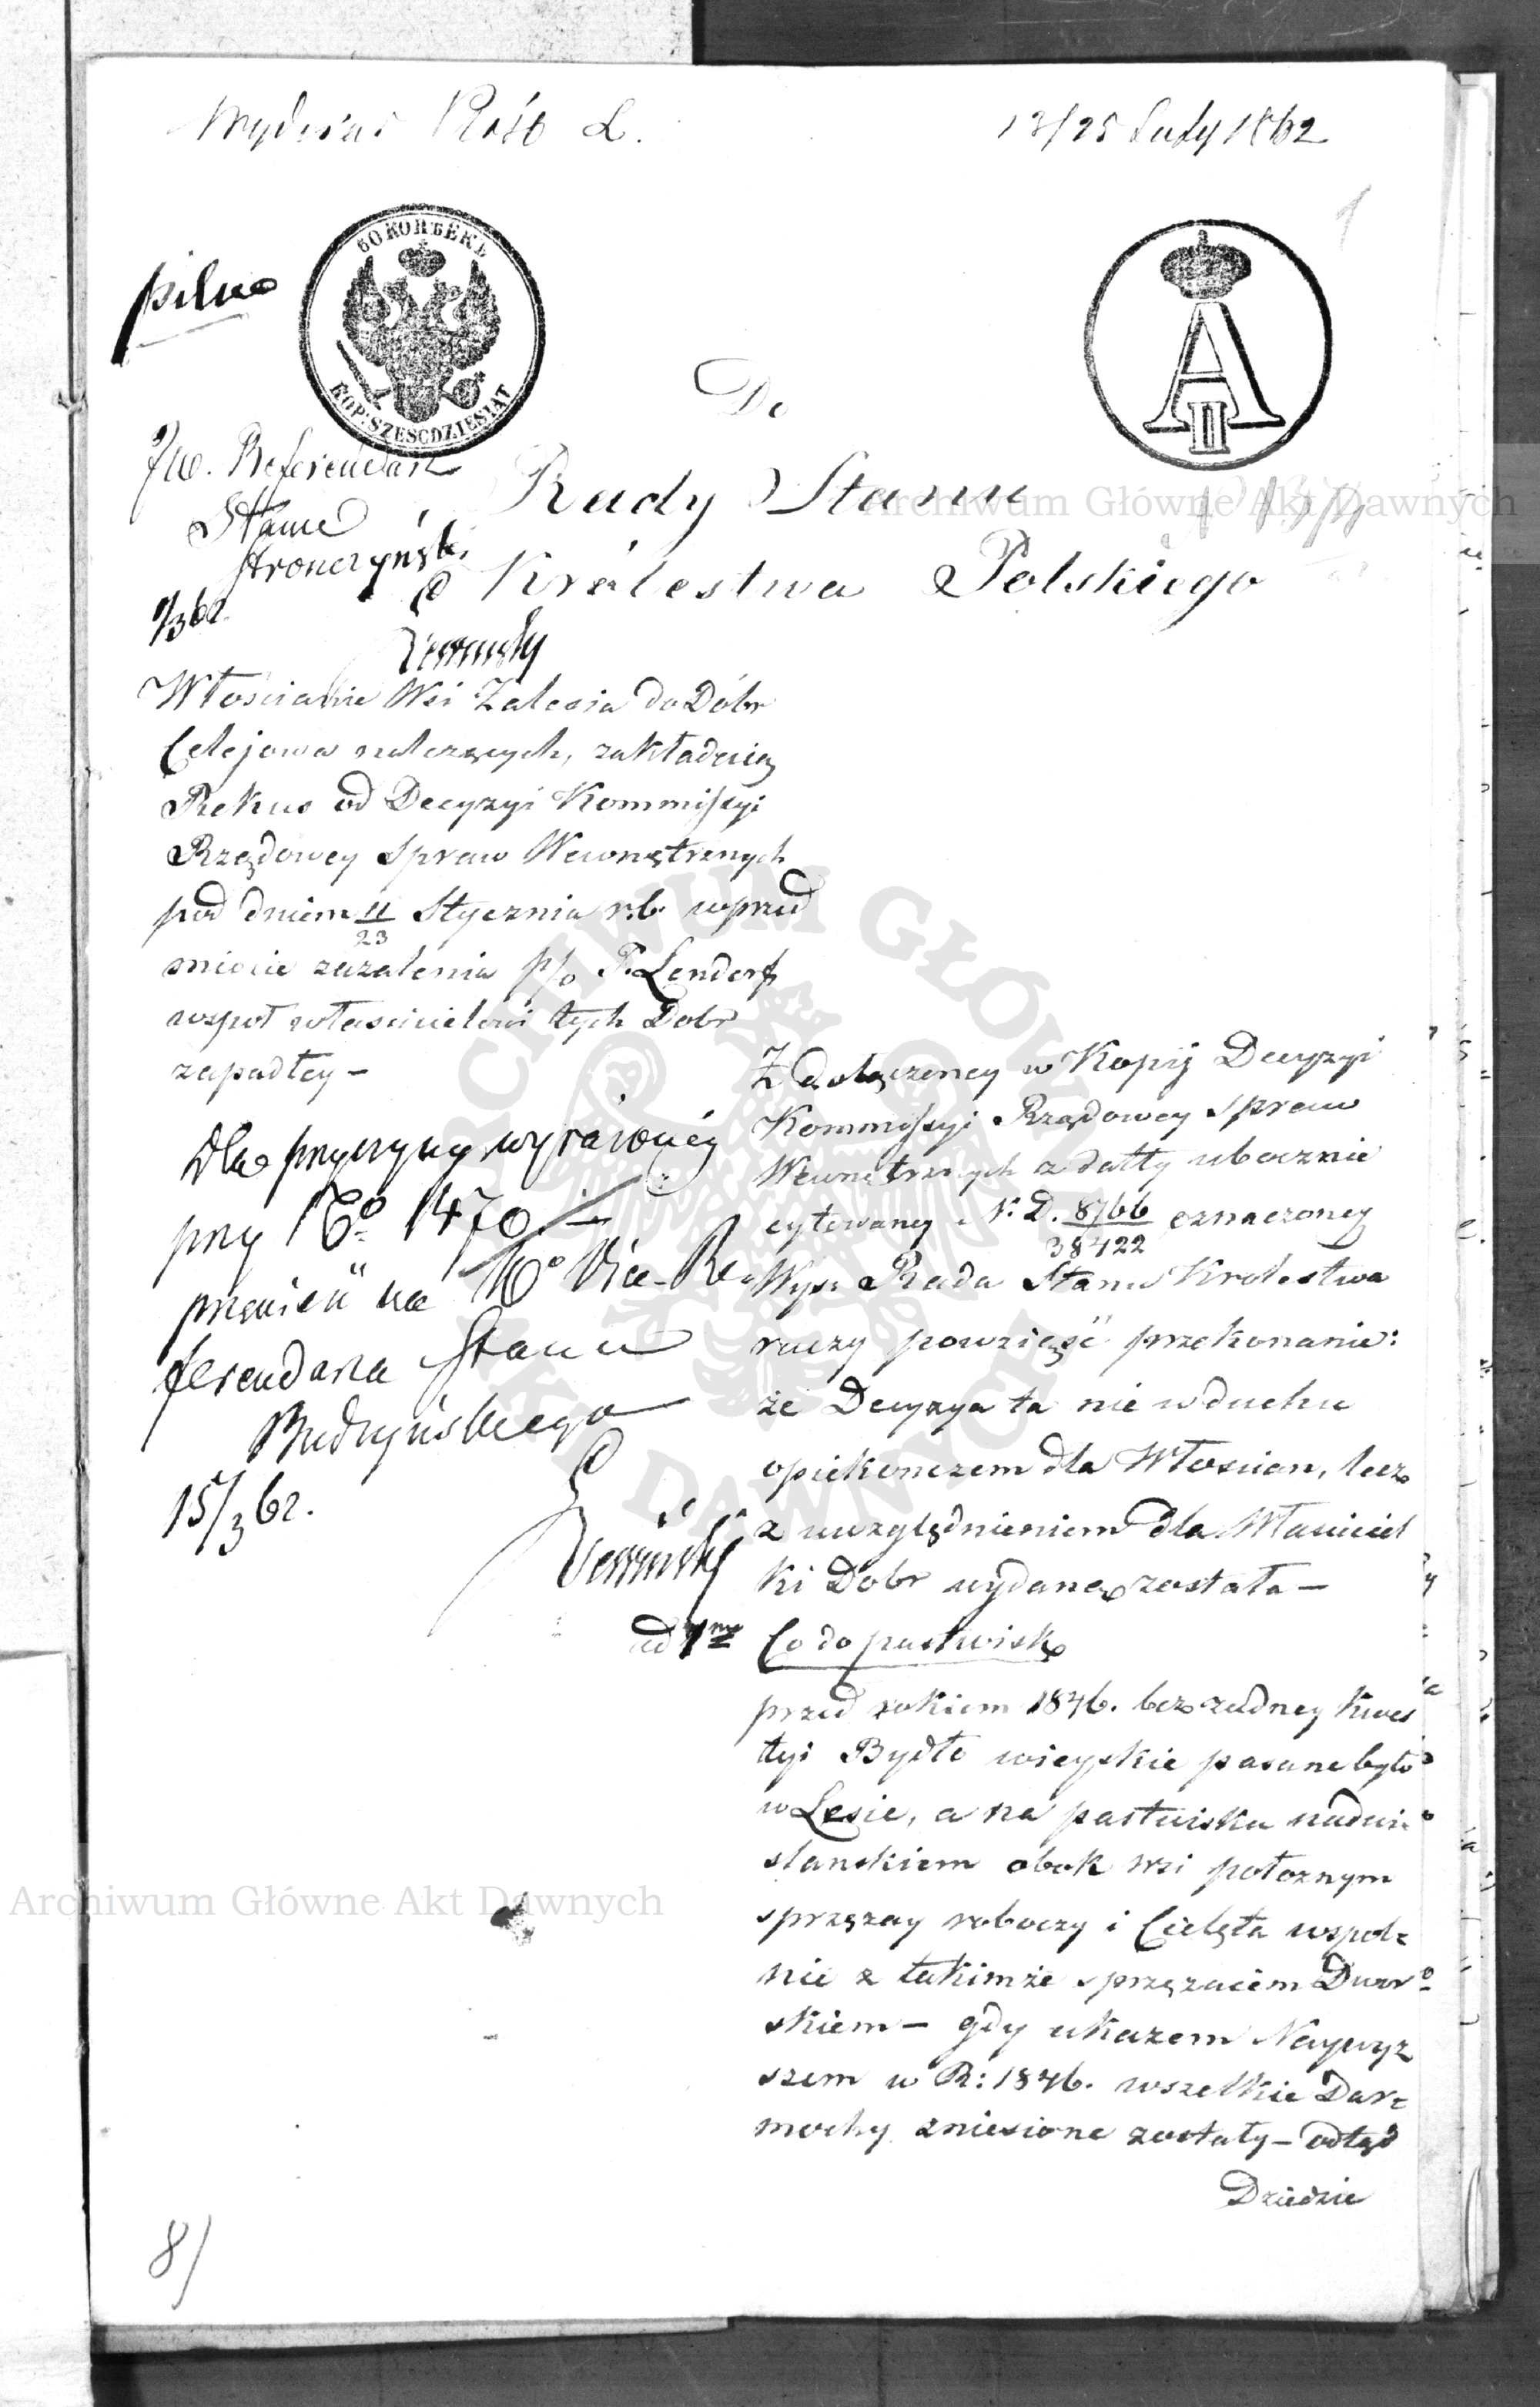 13/25 Luty 1862
1
pilno
60 КОПѢЕКЪ
KOP: SZEŚĆDZIESIĄT
A II
Do
Rady Stanu
Królestwa Polskiego
JW. Referendarz
Stanu
Stronczyński
1/3 62.
Włościanie Wsi Zalesia do Dóbr
Celejowa należących, zakładaią
Rekus od Decyzyi Kommissyi
Rządowey Spraw Wewnętrznych
pod dniem 11/23 Stycznia r.b. w przed
miocie zażalenia p/o P. Lendorf
wspoł właścicielowi tych Dobr
zapadłey –
Dla przyczyny wyrażonéj
przy No 1470 –
przenieść na Wo Vice-Re-
ferendarza Stanu
Budzyńskiego
15/3 62.
Z dołączoney w Kopij Decyzyi
Kommissyi Rządowey Spraw
Wewnętrznych z datty ubocznie
cytowaney N: D. 8766/38422 oznaczoney
Wys: Rada Stanu Krolestwa
raczy powziąść przekonanie:
że Decyzya ta nie w duchu
opiekonczem dla Włoscian, lecz
z uwzględnieniem dla Własciciel
ki Dobr wydana została –
ad 1mo Co do pastwiska
przed rokiem 1846. bez zadney kwes
tyi Bydło wieyskie pasane było
w Lesie, a na pastwisku nadwi=
slanskiem obok wsi położnym
sprzężay roboczy i Cielęta wspol=
nie z takimże sprzężaiem Dwor=
skiem – gdy ukazem Naywyz
szem w R: 1846. wszelkie Dar=
mochy zniesione zostały – odtąd
Dziedzic
8/
Archiwum Główne Akt Dawnych
Archiwum Główne Akt Dawnych
ARCHIWUM GŁÓWNE
AKT DAWNYCH